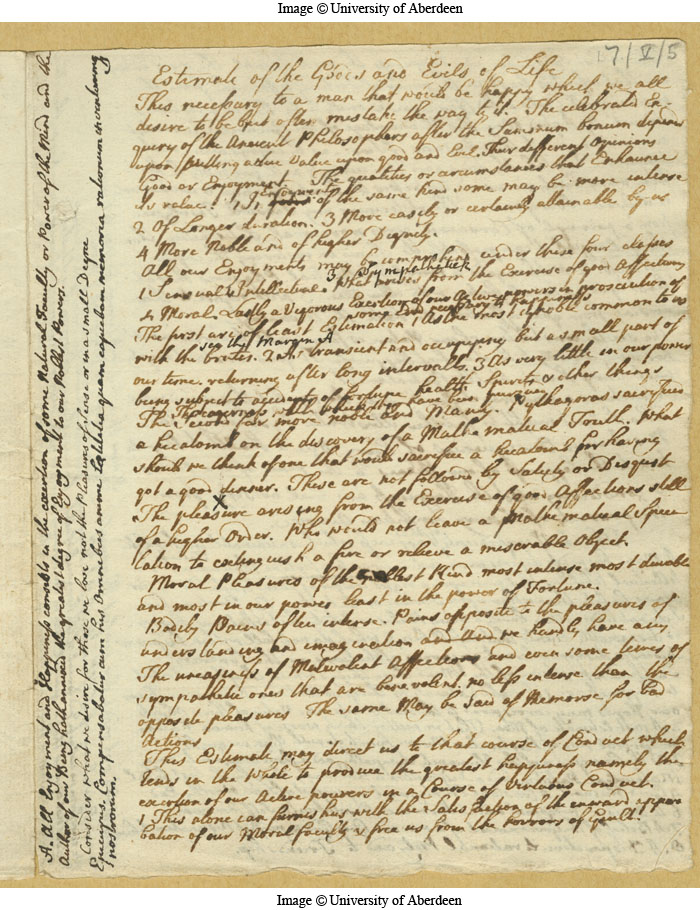 Image © University of Aberdeen
7/V/5
Estimate of the Goods and Evils of Life
This necessary to a man that would be happy which we all
desire to be but often mistake the way to it. The celebrated En-
query of the Ancient Philosophers after the Summum bonum depends
upon putting a due Value upon good and Evil. Their different Opinions
Good or Enjoyment. The qualities or circumstances that Enhaunce
its value. 1 enjoyments of the same kind some may be more intense
2 Of Longer duration. 3 More easily or certainly attainable by us
4 More Noble and of higher Dignity.
All our Enjoyments may be comprehended under these four classes
1 Sensual 2 Intellectual 3 Sympathetick what arises from the Exercise of good Affections
4 Moral Lastly a Vigorous Exertion of our Active powers in prosecution of
some end necessary to happiness
The first are of least Estimation 1 As the most ignoble common to us
see the Margin A
with the brutes. 2 As transient and occupying but a small part of
our time, returning after long intervalls. 3 As very little in our power
being subject to accidents of fortune health Spirits & other things
The Eagerness with which they have been pursued
The Second far more noble and Manly. Pythagoras sacrificed
a hecatomb on the discovery of a Mathematical Truth. What
should we think of one that would sacrifice a hecatomb for having
got a good dinner. These are not followed by Satiety or Disgust
The pleasure arising from the Exercise of good Affections still
of a higher Order. Who would not leave a Mathematical Specu
lation to extinguish a fire or relieve a miserable Object.
Moral Pleasures of the noblest Kind most intense most durable
and most in our power, least in the power of Fortune.
Bodily Pains often intense. Pains opposite to the pleasures of
understanding and imagination and we hardly have any
The uneasiness of Malevolent Affections and even some times of
sympathetic ones that are benevolent. no less intense than the
opposite pleasures The same May be said of Remorse for bad
Actions
This Estimate may direct us to that course of Conduct which
tends in the whole to produce the greatest happiness namely the
exertion of our Active powers in a Course of Virtuous Conduct.
1 This alone can furnish us with the Satisfaction of the inward appro
bation of our Moral faculty & free us from the horrors of Guilt.
A. All Enjoyment and Happiness consists in the exertion of some Natural Faculty or Power of the Mind and the
Author of our Being hath annexed the greatest degree of Enjoyment to our Noblest Powers.
Consider what we desire for those we love not the Pleasures of Sense or in a small Degree
Epicurus. Compensabatur cum his Omnibus animi Lætitia quam capiebam memoria rationum inventorumq
nostrorum.
Image © University of Aberdeen